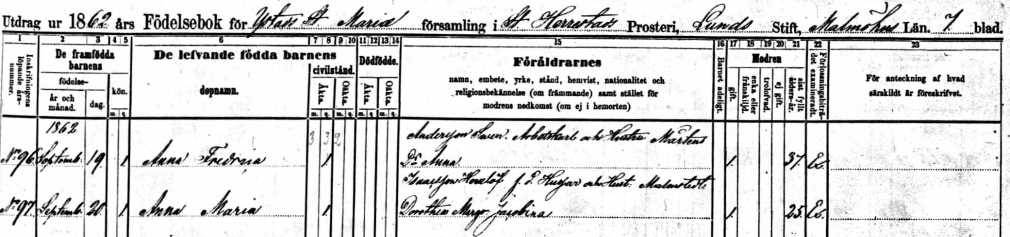 Utdrag ur 1862 års Födelsebok för Ystads St Mariæ församling i St Herrestads Prosteri, Lunds Stift, Malmöhus Län. 7 blad.
1 2 3 4 5 6 7 8 9 10 11 12 13 14 15 16 17 18 19 20 21 22 23
Inskrifningens löpande års-nummer.
De framfödda barnens
födelse-
år och månad.
dag.
kön.
m. q.
De lefvande födda barnens
dopnamn.
civilstånd.
Äkta.
Oäkta.
m. q. m. q.
Dödfödde.
Äkta.
Oäkta.
m. q. m. q.
Föräldrarnes
namn, embete, yrke, stånd, hemvist, nationalitet och
religionsbekännelse (om främmande) samt stället för
modrens nedkomst (om ej i hemorten)
Barnet adeligt.
Modren
gift.
enka eller frånskild.
trolofvad.
ej gift.
sist fyllda ålders-år.
Förlossningsbiträdet examineradt.
För anteckning af hvad
särskildt är föreskrifvet.
1862
Andersson Sven. Arbetskarl och Hustru Mårtens
No 96 Septemb. 19 1 Anna Fredrica 1 Dr Anna 1. 37 Ex.
Isaacsson f. d. Husar och Hust. Malmstedt
No 97. Septemb. 20. 1 Anna Maria 1 Dorothea Margr. Jacobina 1. 25 Ex.